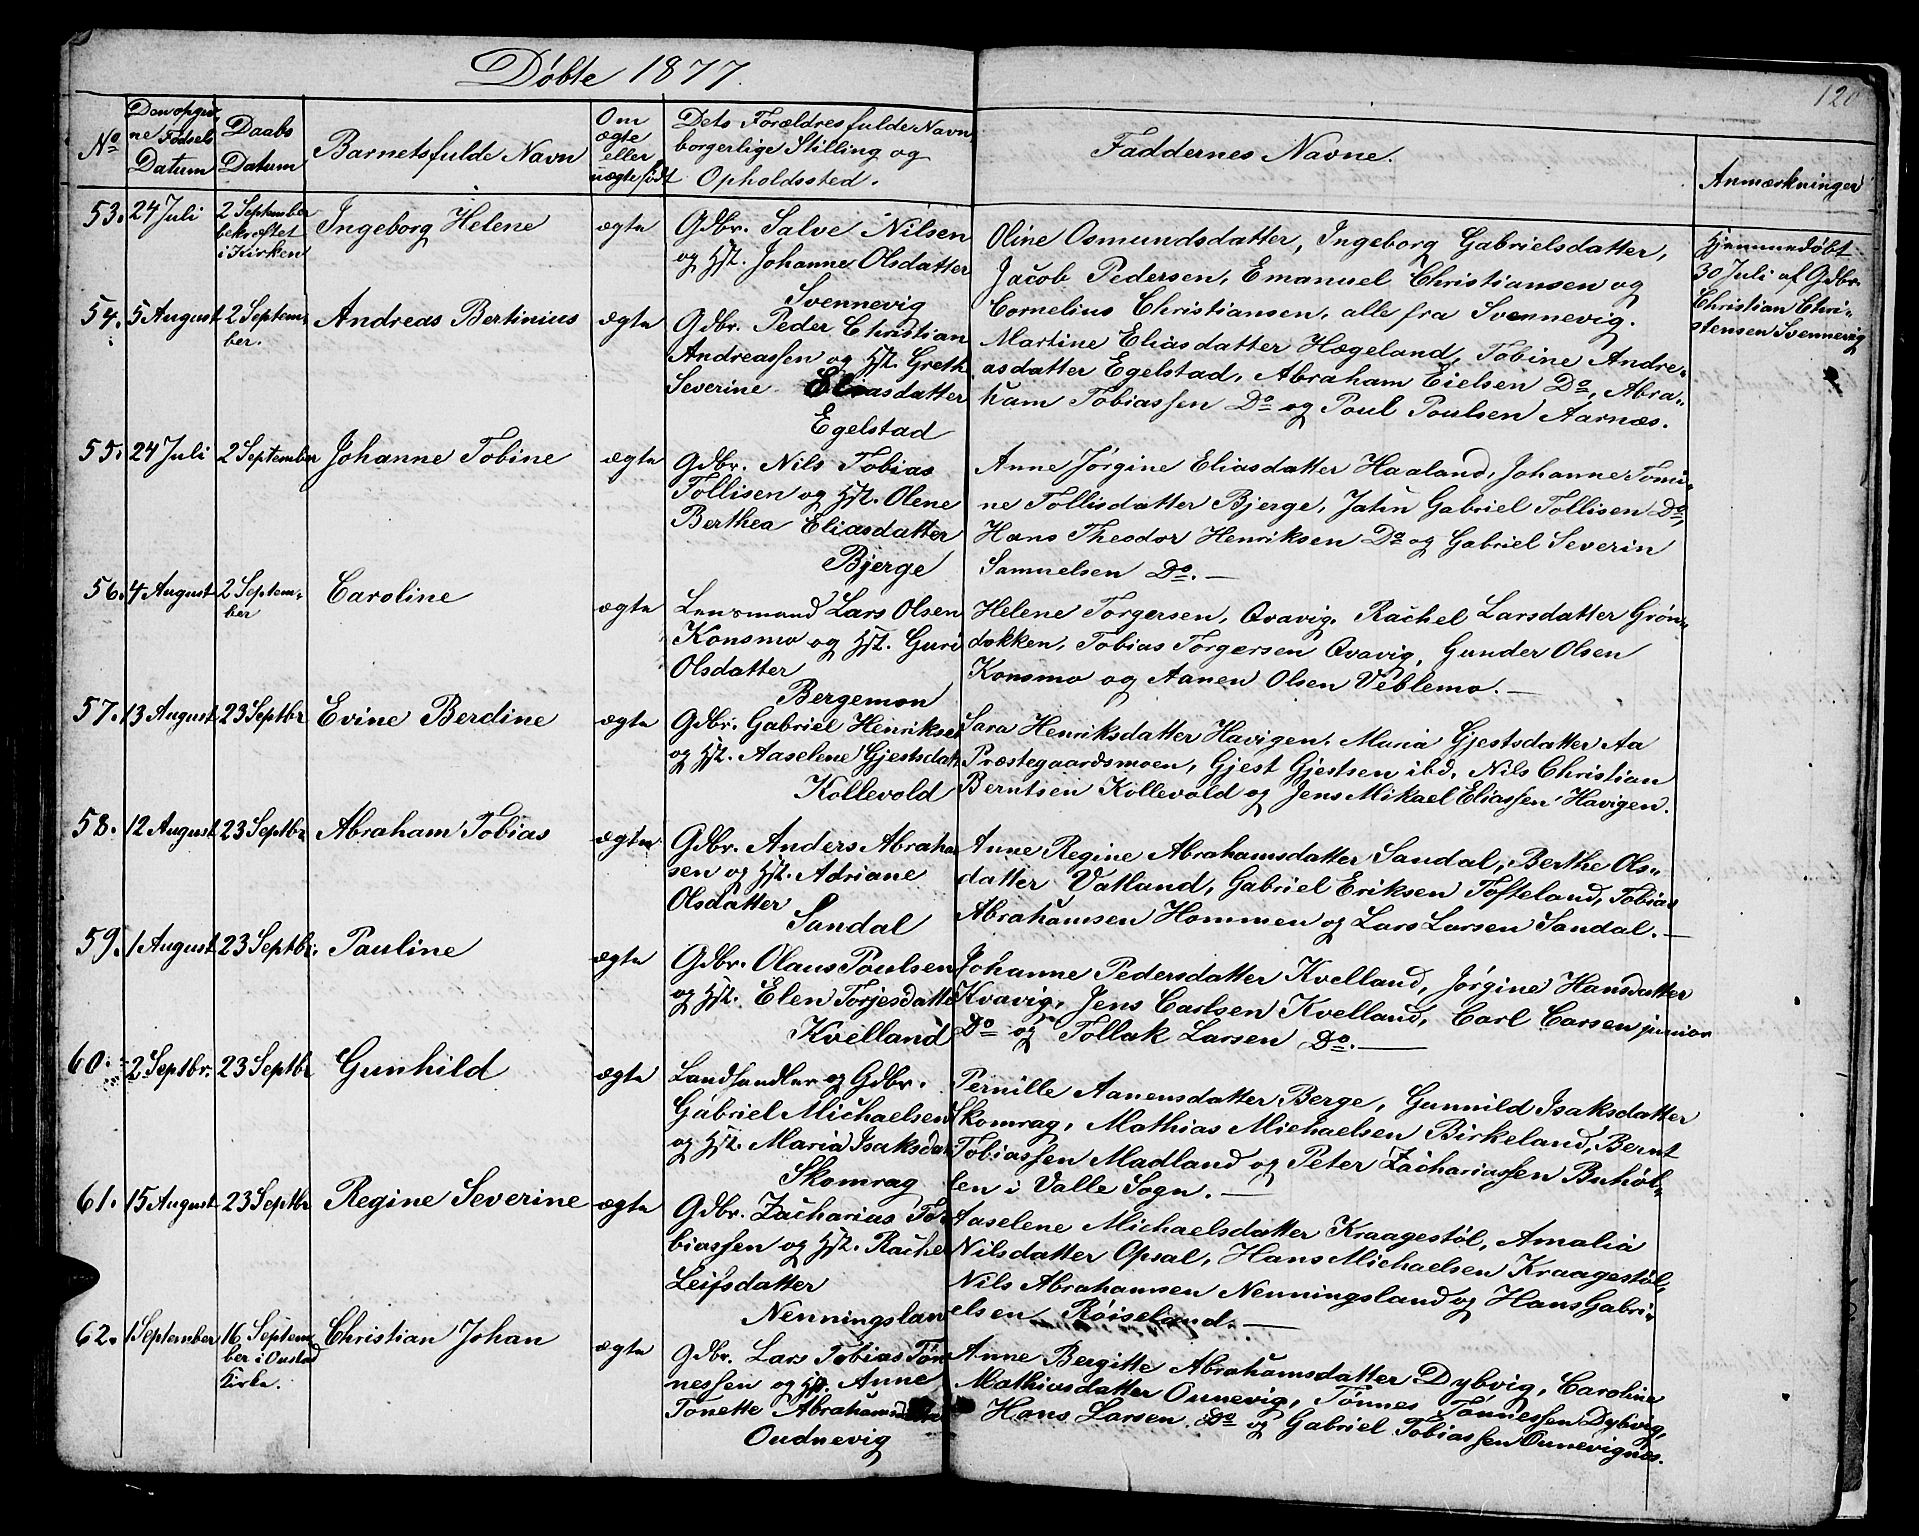 Døbte 1877.
120
No
Den opgiv-
ne Fødsels
Datum
Daabs
Datum
Barnets fulde Navn
Om
ægte
eller
uægte født
Dets Forældres fulde Navn
borgerlige Stilling og
Opholdssted.
Faddernes Navne.
Anmærkninger
53. 24 Juli
2 September
bekræftet
i Kirken
Ingeborg Helene
ægte
Gdbr. Salve Nilsen
og Hst. Johanne Olsdatter
Svennevig
Oline Osmundsdatter, Ingeborg Gabrielsdatter,
Jacob Pedersen, Emanuel Christiansen og
Cornelius Christiansen, alle fra Svennevig.
Hjemmedøbt
30 Juli af Gdbr.
Christian Chri-
stensen Svennevig
54. 5 August
2 Septem-
ber.
Andreas Bertinius
ægte
Gdbr. Peder Christian
Andreassen og Hst. Greth
Severine Eliasdatter
Egelstad
Martine Eliasdatter Hægeland, Tobine Andre-
asdatter Egelstad, Abraham Eielsen Do, Abra-
ham Tobiassen Do og Poul Poulsen Aarnæs.
55. 24 Juli
2 September
Johanne Tobine
ægte
Gdbr. Nils Tobias
Tollisen og Hst. Olene
Berthea Eliasdatter
Bjerge
Anne Jørgine Eliasdatter Haaland, Johanne Tomi-
ne Tollisdatter Bjerge, Jahn Gabriel Tollisen Do,
Hans Theodor Henriksen Do og Gabriel Severin
Samuelsen Do. —
56. 4 August
2 Septem-
ber
Caroline
ægte
Lensmand Lars Olsen
Konsmo og Hst. Guri
Olsdatter
Bergemon
Helene Torgersen, Qvavig, Rachel Larsdatter Grøn-
dokken, Tobias Torgersen Qvavig, Gunder Olsen
Konsmo og Aanen Olsen Veblemo. —
57. 13 August
23 Septbr
Evine Berdine
ægte
Gdbr. Gabriel Henriksen
og Hst. Aaselene Gjestsdatt
Kollevold
Sara Henriksdatter Havigen, Maria Gjestsdatter Aa
Præstegaardsmoen, Gjest Gjestsen ibd, Nils Christian
Berntsen Kollevold og Jens Mikael Eliassen Havigen.
58. 12 August
23 Septbr
Abraham Tobias
ægte
Gdbr. Anders Abraham
sen og Hst. Adriane
Olsdatter
Sandal
Anne Regine Abrahamsdatter Sandal, Berthe Ols-
datter Vatland, Gabriel Eriksen Tofteland, Tobias
Abrahamsen Hommen og Lars Larsen Sandal. —
59. 1 August
23 Septbr.
Pauline
ægte
Gdbr. Olaus Poulsen
og Hst. Elen Torjesdatte
Kvelland
Johanne Pedersdatter Kvelland, Jørgine Hansdatter
Kvavig, Jens Carlsen Kvelland, Carl Carsen junior
Do og Tollak Larsen Do. —
60. 2 Septbr.
23 Septbr
Gunhild
ægte
Landhandler og Gdbr.
Gabriel Michaelsen
og Hst. Maria Isaksdat
Skomrag
Pernille Aanensdatter Berge, Gunnild Isaksdatter
Skomrag, Mathias Michaelsen Birkeland, Bernt
Tobiassen Madland og Peter Zachariassen Buhøl-
len i Valle Sogn. —
61. 15 August
23 Septbr
Regine Severine
ægte
Gdbr. Zacharias To
biassen og Hst. Rachel
Leifsdatter
Nenningslan
Aaselene Michaelsdatter Kraagestøl, Amalia
Nilsdatter Opsal, Hans Michaelsen Kraagestøl,
Nils Abrahamsen Nenningsland og Hans Gabri-
elsen Røiseland. —
62. 1 September
16 Septem
ber i Oustad
Kirke.
Christian Johan
ægte
Gdbr. Lars Tobias Tøn
nessen og Hst. Anne
Tonette Abrahamsdatter
Oudnevig
Anne Bergitte Abrahamsdatter Dybvig, Caroline
Mathiasdatter Ounevig, Tønnes Tønnessen Dybvig,
Hans Larsen Do og Gabriel Tobiassen Ounevignes.